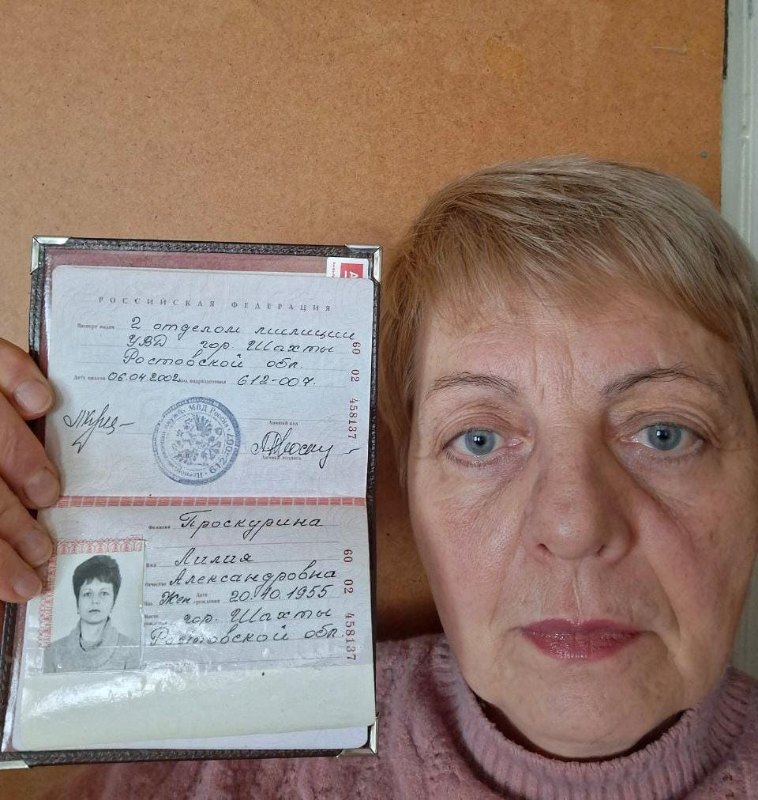 РОССИЙСКАЯ ФЕДЕРАЦИЯ
Паспорт выдан 2 отделом милиции
УВД гор. Шахты
Ростовской обл.
Дата выдачи 06.04.2002 Код подразделения 612-007
60 02 458137
Личный код
Личная подпись
Фамилия Проскурина
Имя Лилия
Отчество Александровна
Пол Жен Дата рождения 20.10.1955
Место рождения гор. Шахты
Ростовской обл.
60 02 458137